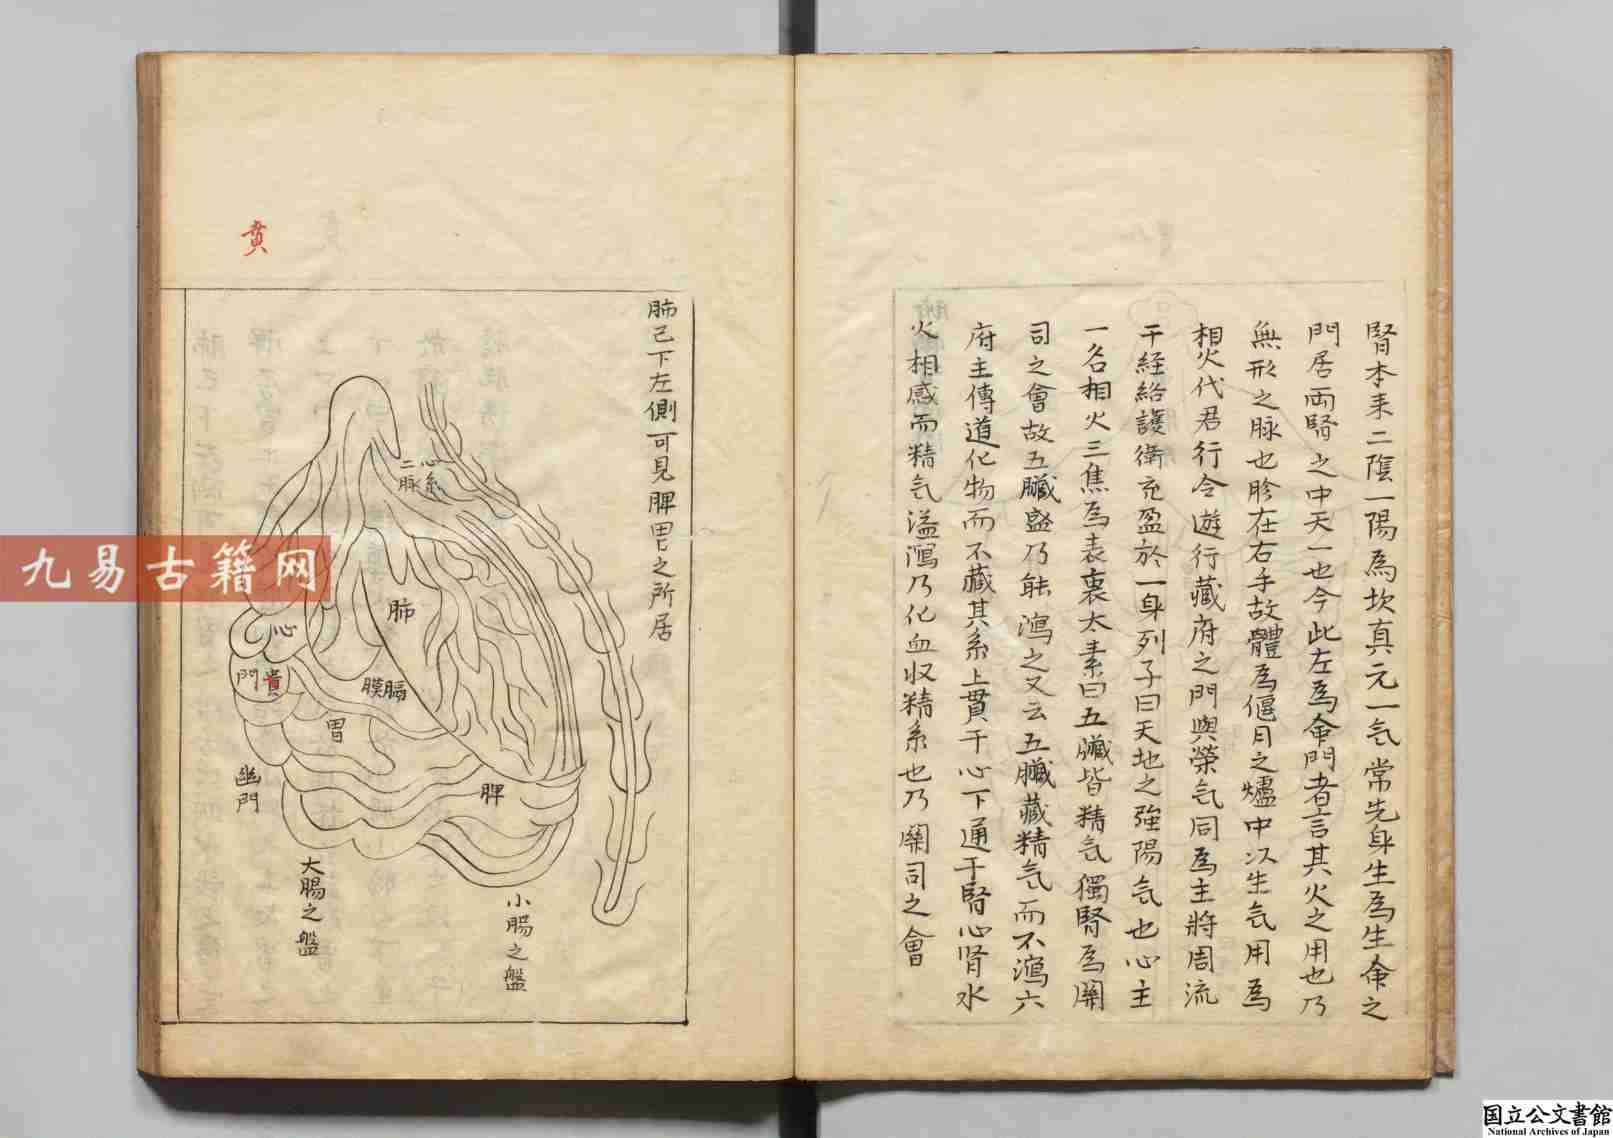 腎本来二陰一陽為坎真元一气常先身生為生命之
門居両腎之中天一也今此左為命門者言其火之用也乃
無形之脉也胗在右手故體為偃月之爐中以生气用為
相火代君行令遊行藏府之門與榮气同為主將周流
于経絡護衛充盈於一身列子曰天地之強陽气也心主
一名相火三焦為表裏太素曰五臟皆精气獨腎為關
司之會故五臟盛乃能瀉之又云五臟藏精气而不瀉六
府主傳道化物而不藏其系上貫于心下通于腎心腎水
火相感而精气溢瀉乃化血収精系也乃關司之會
賁
肺已下左側可見脾胃之所居
心系
二脉
肺
心
賁門
膈膜
胃
幽門
脾
大腸之盤
小腸之盤
九易古籍网
国立公文書館
National Archives of Japan